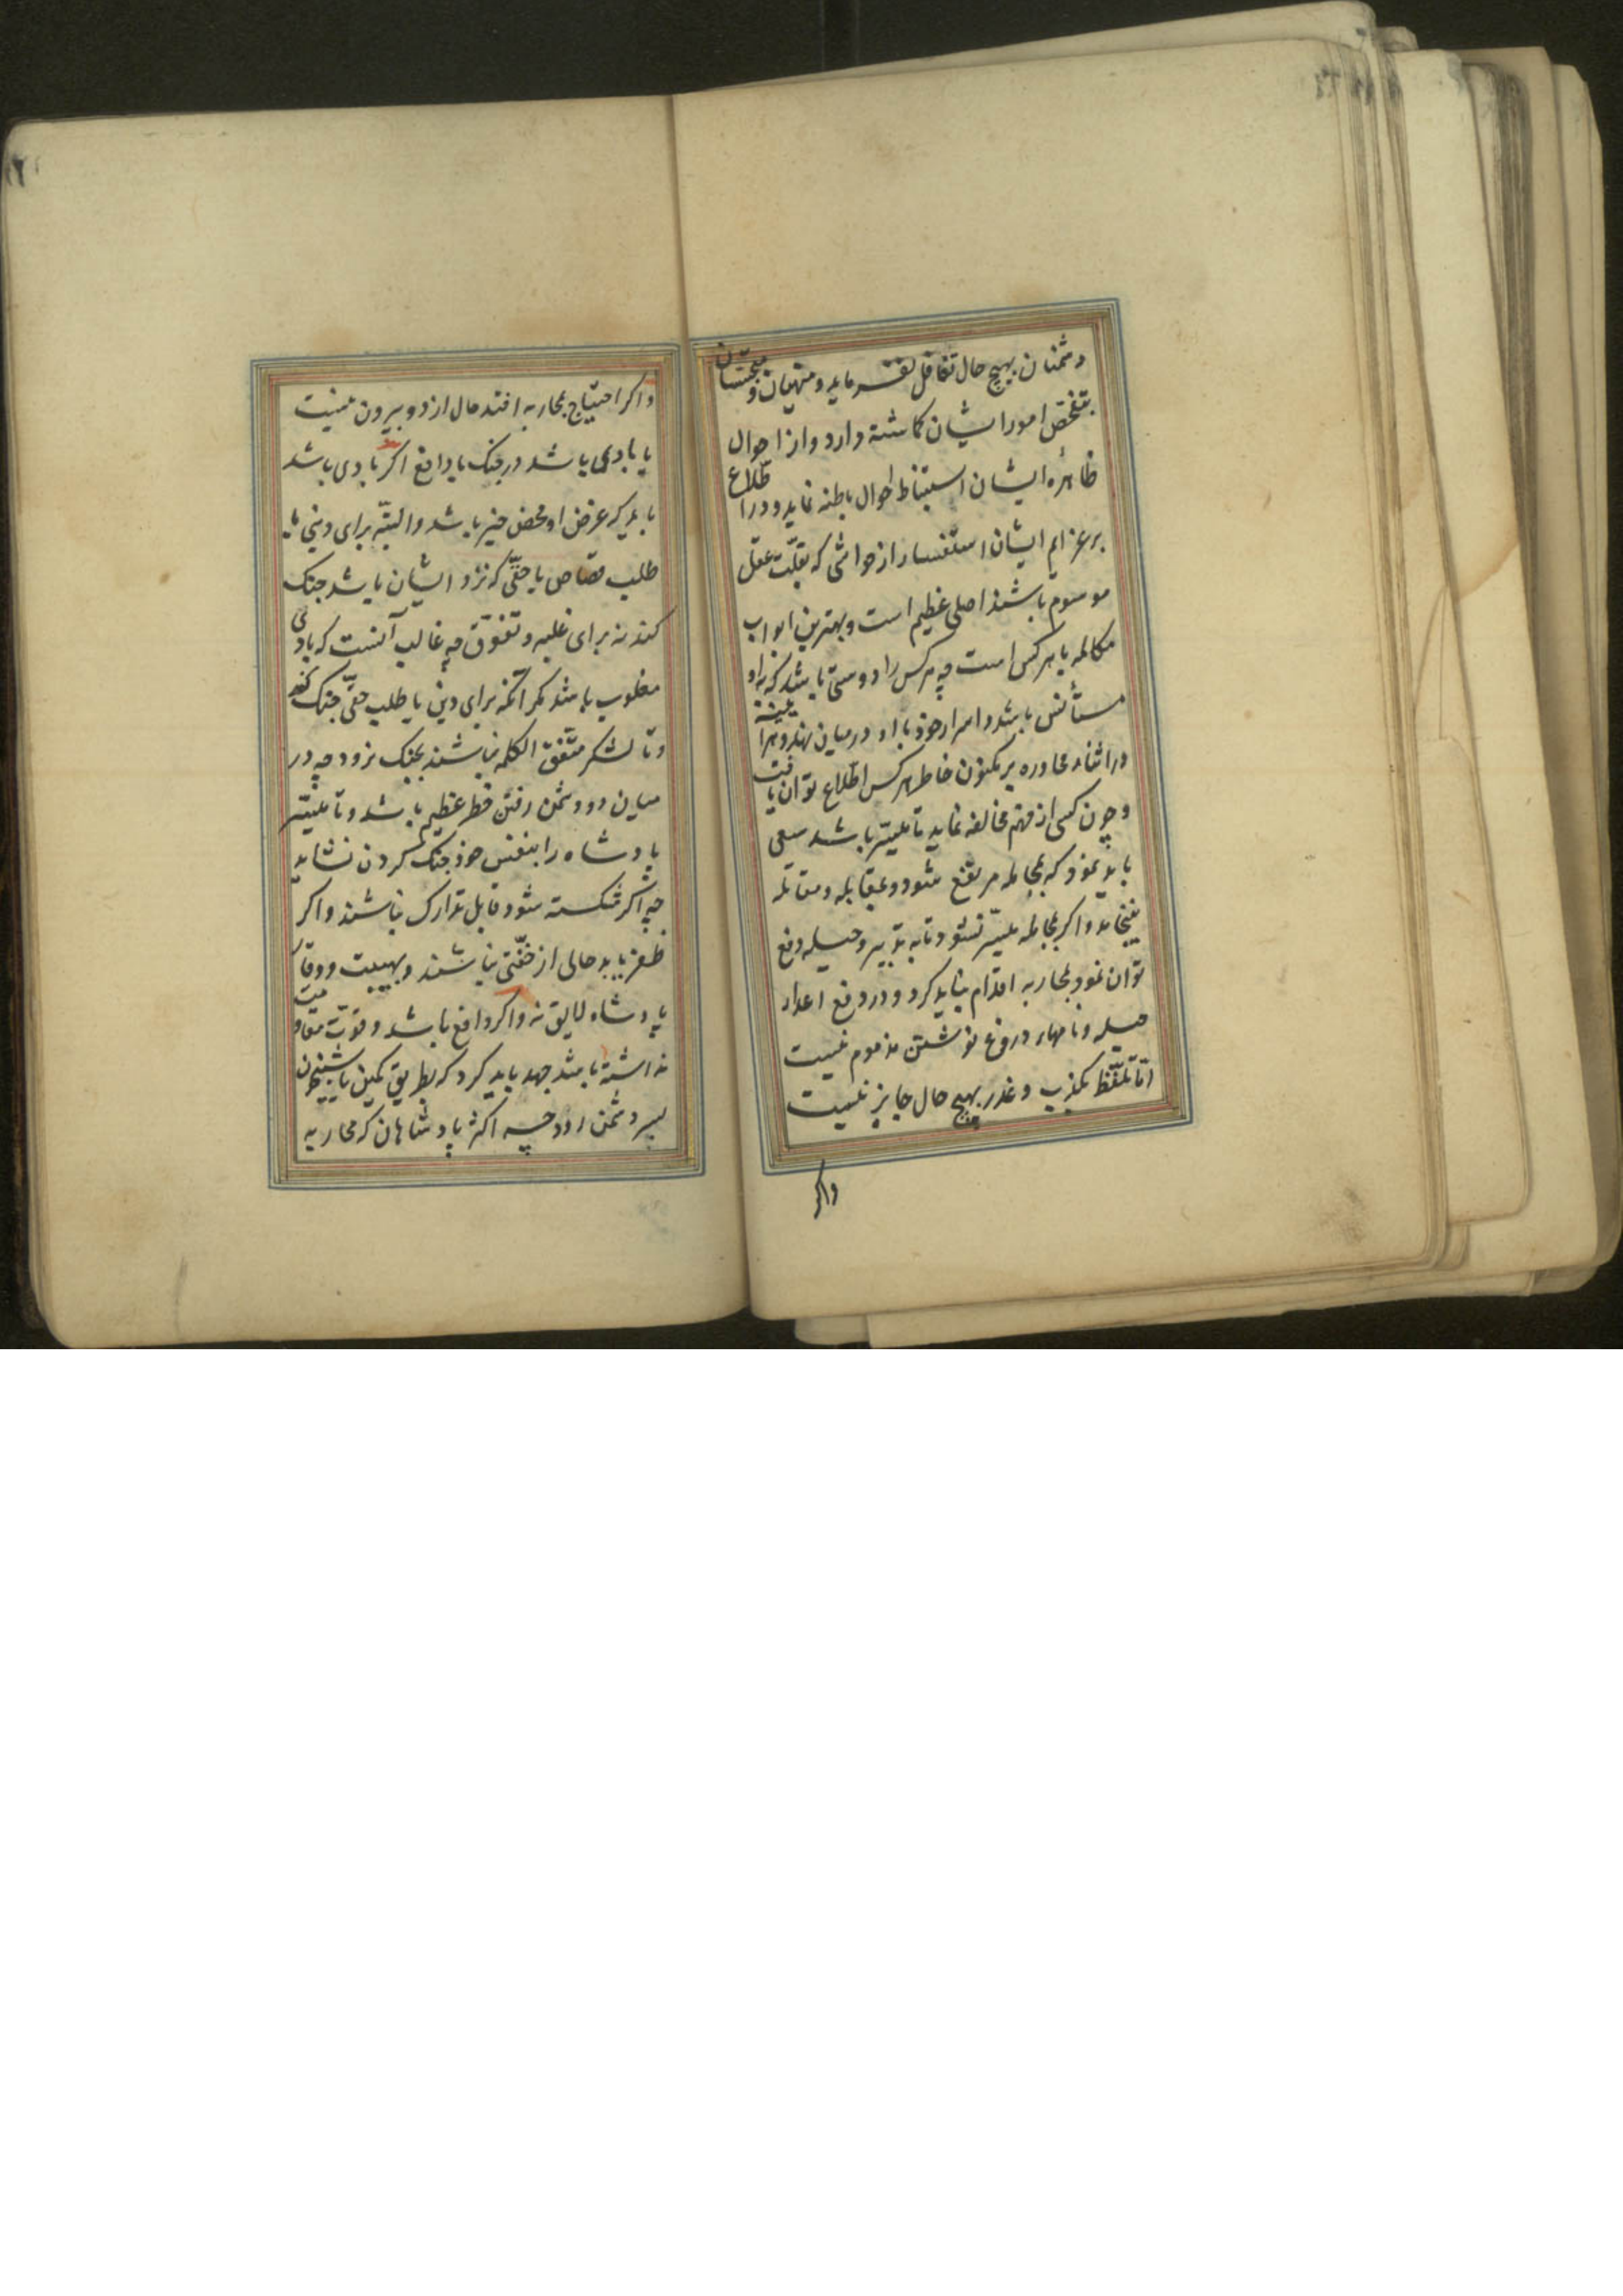 دشمنان بهیچ حال تغافل نفرماید و منهیان و متجسّسان
بتفحّص امور ایشان کماشته دارد و از احوال
ظاهرهٔ ایشان استنباط احوال باطنه نماید و در اطّلاع
بر عزایم ایشان استفسار از حواشی که بقلّت عقل
موسوم باشند اصلی عظیم است و بهترین ابواب
مکالمه با هر کس است چه هر کس را دوستی باشد که به او
مستأنس باشد و اسرار خود با او در میان نهد و هرآینه
در اثناء محاوره بر مکنون خاطر هر کس اطّلاع توان یافت
و چون کسی از فهم مخالفه نماید تا میسّر باشد سعی
باید نمود که بمجامله مرتفع شود و بمقابله و مقاتله
نینجامد و اکر بمجامله میسّر نشود تا به تدبیر و حیله دفع
توان نمود بمحاربه اقدام نباید کرد و در دفع اعداء
حیله و نامهاء دروغ نوشتن مذموم نیست
امّا تلفّظ بکذب و غدر بهیچ حال جایز نیست
واکر
و اکر احتیاج بمحاربه افتد حال از دو بیرون نیست
یا بادی باشد در جنک یا دافع اکر بادی باشد
باید که غرض او محض خیر باشد و البتّه برای دینی یا
طلب قصاص یا حقّی که نزد ایشان باشد جنک
کند نه برای غلبه و تفوّق چه غالب آنست که بادی
مغلوب باشد مکر آنکه برای دین یا طلب حقّی جنک کند
و تا لشکر متّفق الکلمه نباشند بجنک نرود چه در
میان دو دشمن رفتن خطر عظیم باشد و تا میسّر
پادشاه را بنفس خود جنک کردن نشاید
چه اکر شکسته شود قابل تدارک نباشند و اکر
ظفر یابد خالی از خفّتی نباشند و بهیبت و وقار
پادشاه لایق نه و اکر دافع باشد و قوّت مقاومت
نداشته باشد جهد باید کرد که بطریق کمین یا شبیخون
بسر دشمن رود چه اکثر پادشاهان که محاربه